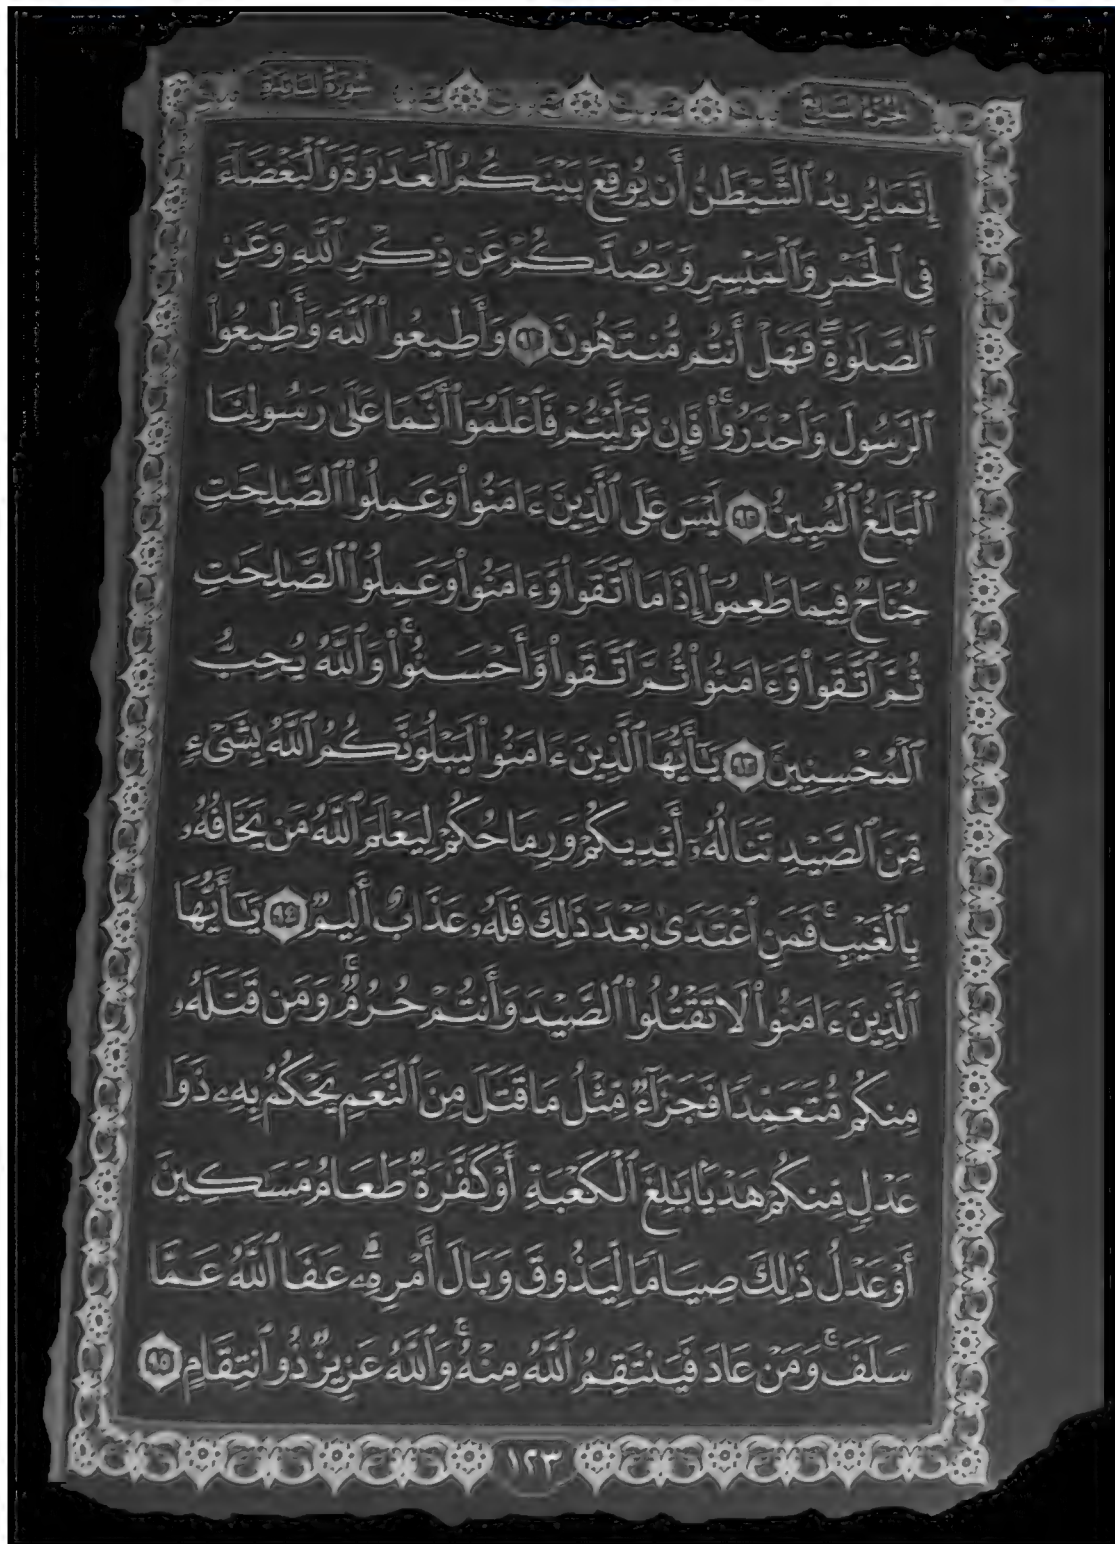 سُورَةُ المَائِدَةِ
الجُزْءُ السَّابِعُ
إِنَّمَا يُرِيدُ ٱلشَّيْطَٰنُ أَن يُوقِعَ بَيْنَكُمُ ٱلْعَدَٰوَةَ وَٱلْبَغْضَآءَ
فِى ٱلْخَمْرِ وَٱلْمَيْسِرِ وَيَصُدَّكُمْ عَن ذِكْرِ ٱللَّهِ وَعَنِ
ٱلصَّلَوٰةِۖ فَهَلْ أَنتُم مُّنتَهُونَ ٩١ وَأَطِيعُوا۟ ٱللَّهَ وَأَطِيعُوا۟
ٱلرَّسُولَ وَٱحْذَرُوا۟ۚ فَإِن تَوَلَّيْتُمْ فَٱعْلَمُوٓا۟ أَنَّمَا عَلَىٰ رَسُولِنَا
ٱلْبَلَٰغُ ٱلْمُبِينُ ٩٢ لَيْسَ عَلَى ٱلَّذِينَ ءَامَنُوا۟ وَعَمِلُوا۟ ٱلصَّٰلِحَٰتِ
جُنَاحٌ فِيمَا طَعِمُوٓا۟ إِذَا مَا ٱتَّقَوا۟ وَّءَامَنُوا۟ وَعَمِلُوا۟ ٱلصَّٰلِحَٰتِ
ثُمَّ ٱتَّقَوا۟ وَّءَامَنُوا۟ ثُمَّ ٱتَّقَوا۟ وَّأَحْسَنُوا۟ۗ وَٱللَّهُ يُحِبُّ
ٱلْمُحْسِنِينَ ٩٣ يَٰٓأَيُّهَا ٱلَّذِينَ ءَامَنُوا۟ لَيَبْلُوَنَّكُمُ ٱللَّهُ بِشَىْءٍ
مِّنَ ٱلصَّيْدِ تَنَالُهُۥٓ أَيْدِيكُمْ وَرِمَاحُكُمْ لِيَعْلَمَ ٱللَّهُ مَن يَخَافُهُۥ
بِٱلْغَيْبِۚ فَمَنِ ٱعْتَدَىٰ بَعْدَ ذَٰلِكَ فَلَهُۥ عَذَابٌ أَلِيمٌ ٩٤ يَٰٓأَيُّهَا
ٱلَّذِينَ ءَامَنُوا۟ لَا تَقْتُلُوا۟ ٱلصَّيْدَ وَأَنتُمْ حُرُمٌۚ وَمَن قَتَلَهُۥ
مِنكُم مُّتَعَمِّدًا فَجَزَآءٌ مِّثْلُ مَا قَتَلَ مِنَ ٱلنَّعَمِ يَحْكُمُ بِهِۦ ذَوَا
عَدْلٍ مِّنكُمْ هَدْيًۢا بَٰلِغَ ٱلْكَعْبَةِ أَوْ كَفَّٰرَةٌ طَعَامُ مَسَٰكِينَ
أَوْ عَدْلُ ذَٰلِكَ صِيَامًا لِّيَذُوقَ وَبَالَ أَمْرِهِۦۗ عَفَا ٱللَّهُ عَمَّا
سَلَفَۚ وَمَنْ عَادَ فَيَنتَقِمُ ٱللَّهُ مِنْهُۗ وَٱللَّهُ عَزِيزٌ ذُو ٱنتِقَامٍ ٩٥
١٢٣